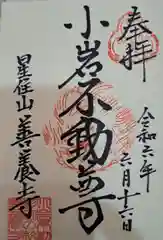 奉拝
令和六年
六月十六日
小岩不動尊
星住山
善養寺